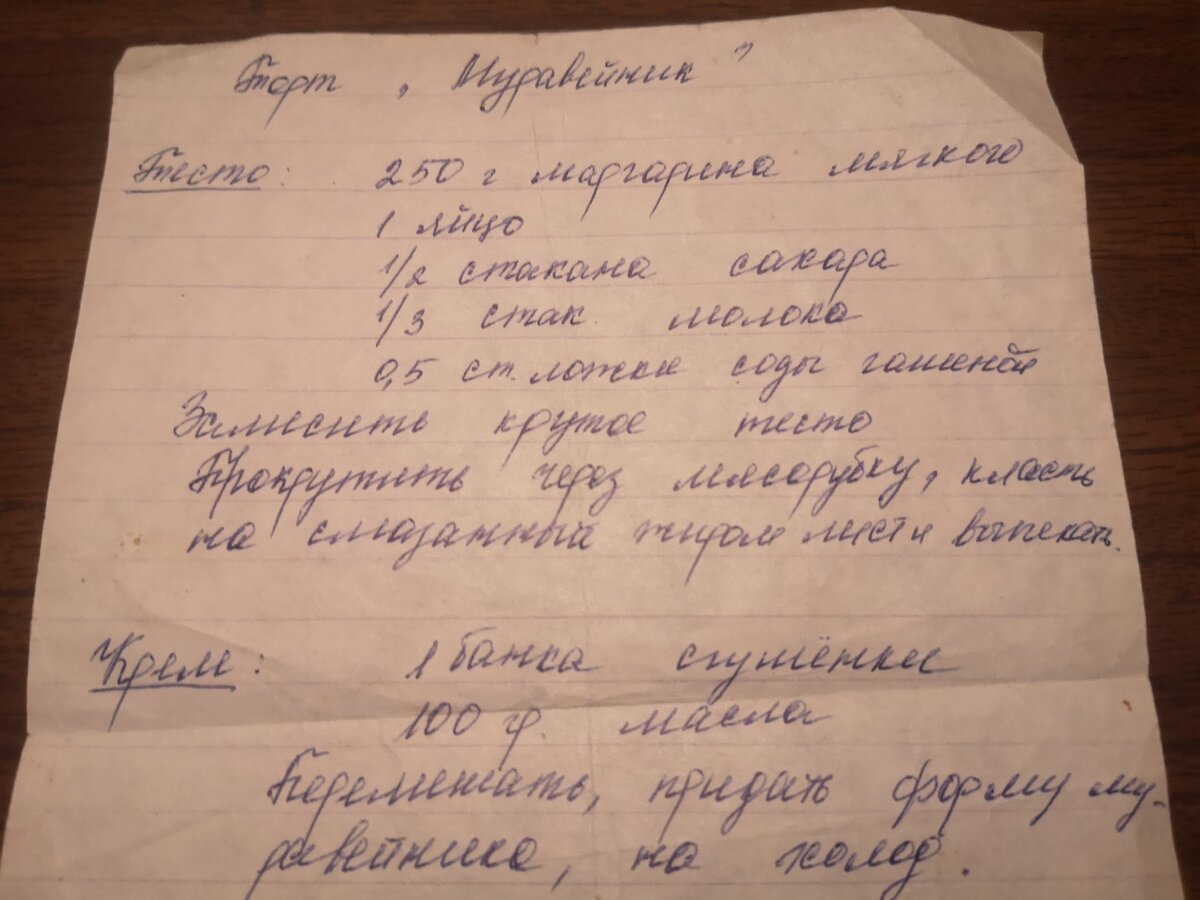 Торт „Муравейник”
Тесто: 250 г маргарина мягкого
1 яйцо
1/2 стакана сахара
1/3 стак молока
0,5 ст. ложки соды гашеной
Замесить крутое тесто
Прокрутить через мясорубку, класть
на смазанный жиром лист и выпекать.
Крем: 1 банка сгущёнки
100 гр. масла
Перемешать, придать форму му-
равейника, на холод.